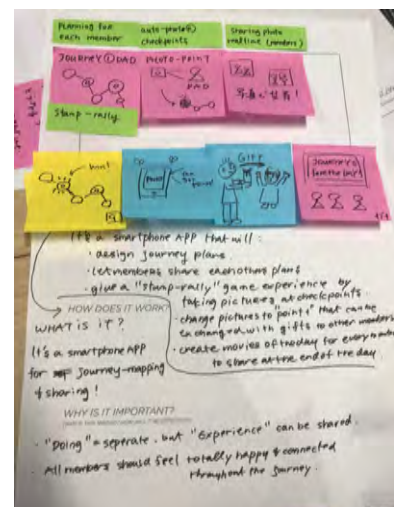 Planning for each member
auto-photo
checkpoints
Sharing photo realtime (members)
JOURNEY ① DAD
PHOTO-POINT
DAD
Stamp-rally
hunt
GIFT
Journey's
It's a smartphone APP that will:
· assign journey plans
· let members share each others plans
· give a "stamp-rally" game experience by
taking pictures at checkpoints.
· change pictures to "points" that can be
exchanged with gifts to other members
· create movies of the day for every member
to share at the end of the day
HOW DOES IT WORK?
WHAT IS IT?
It's a smartphone APP
for journey-mapping
& sharing!
WHY IS IT IMPORTANT?
· "Doing" = seperate, but "Experience" can be shared.
· All members should feel totally happy & connected
throughout the journey.